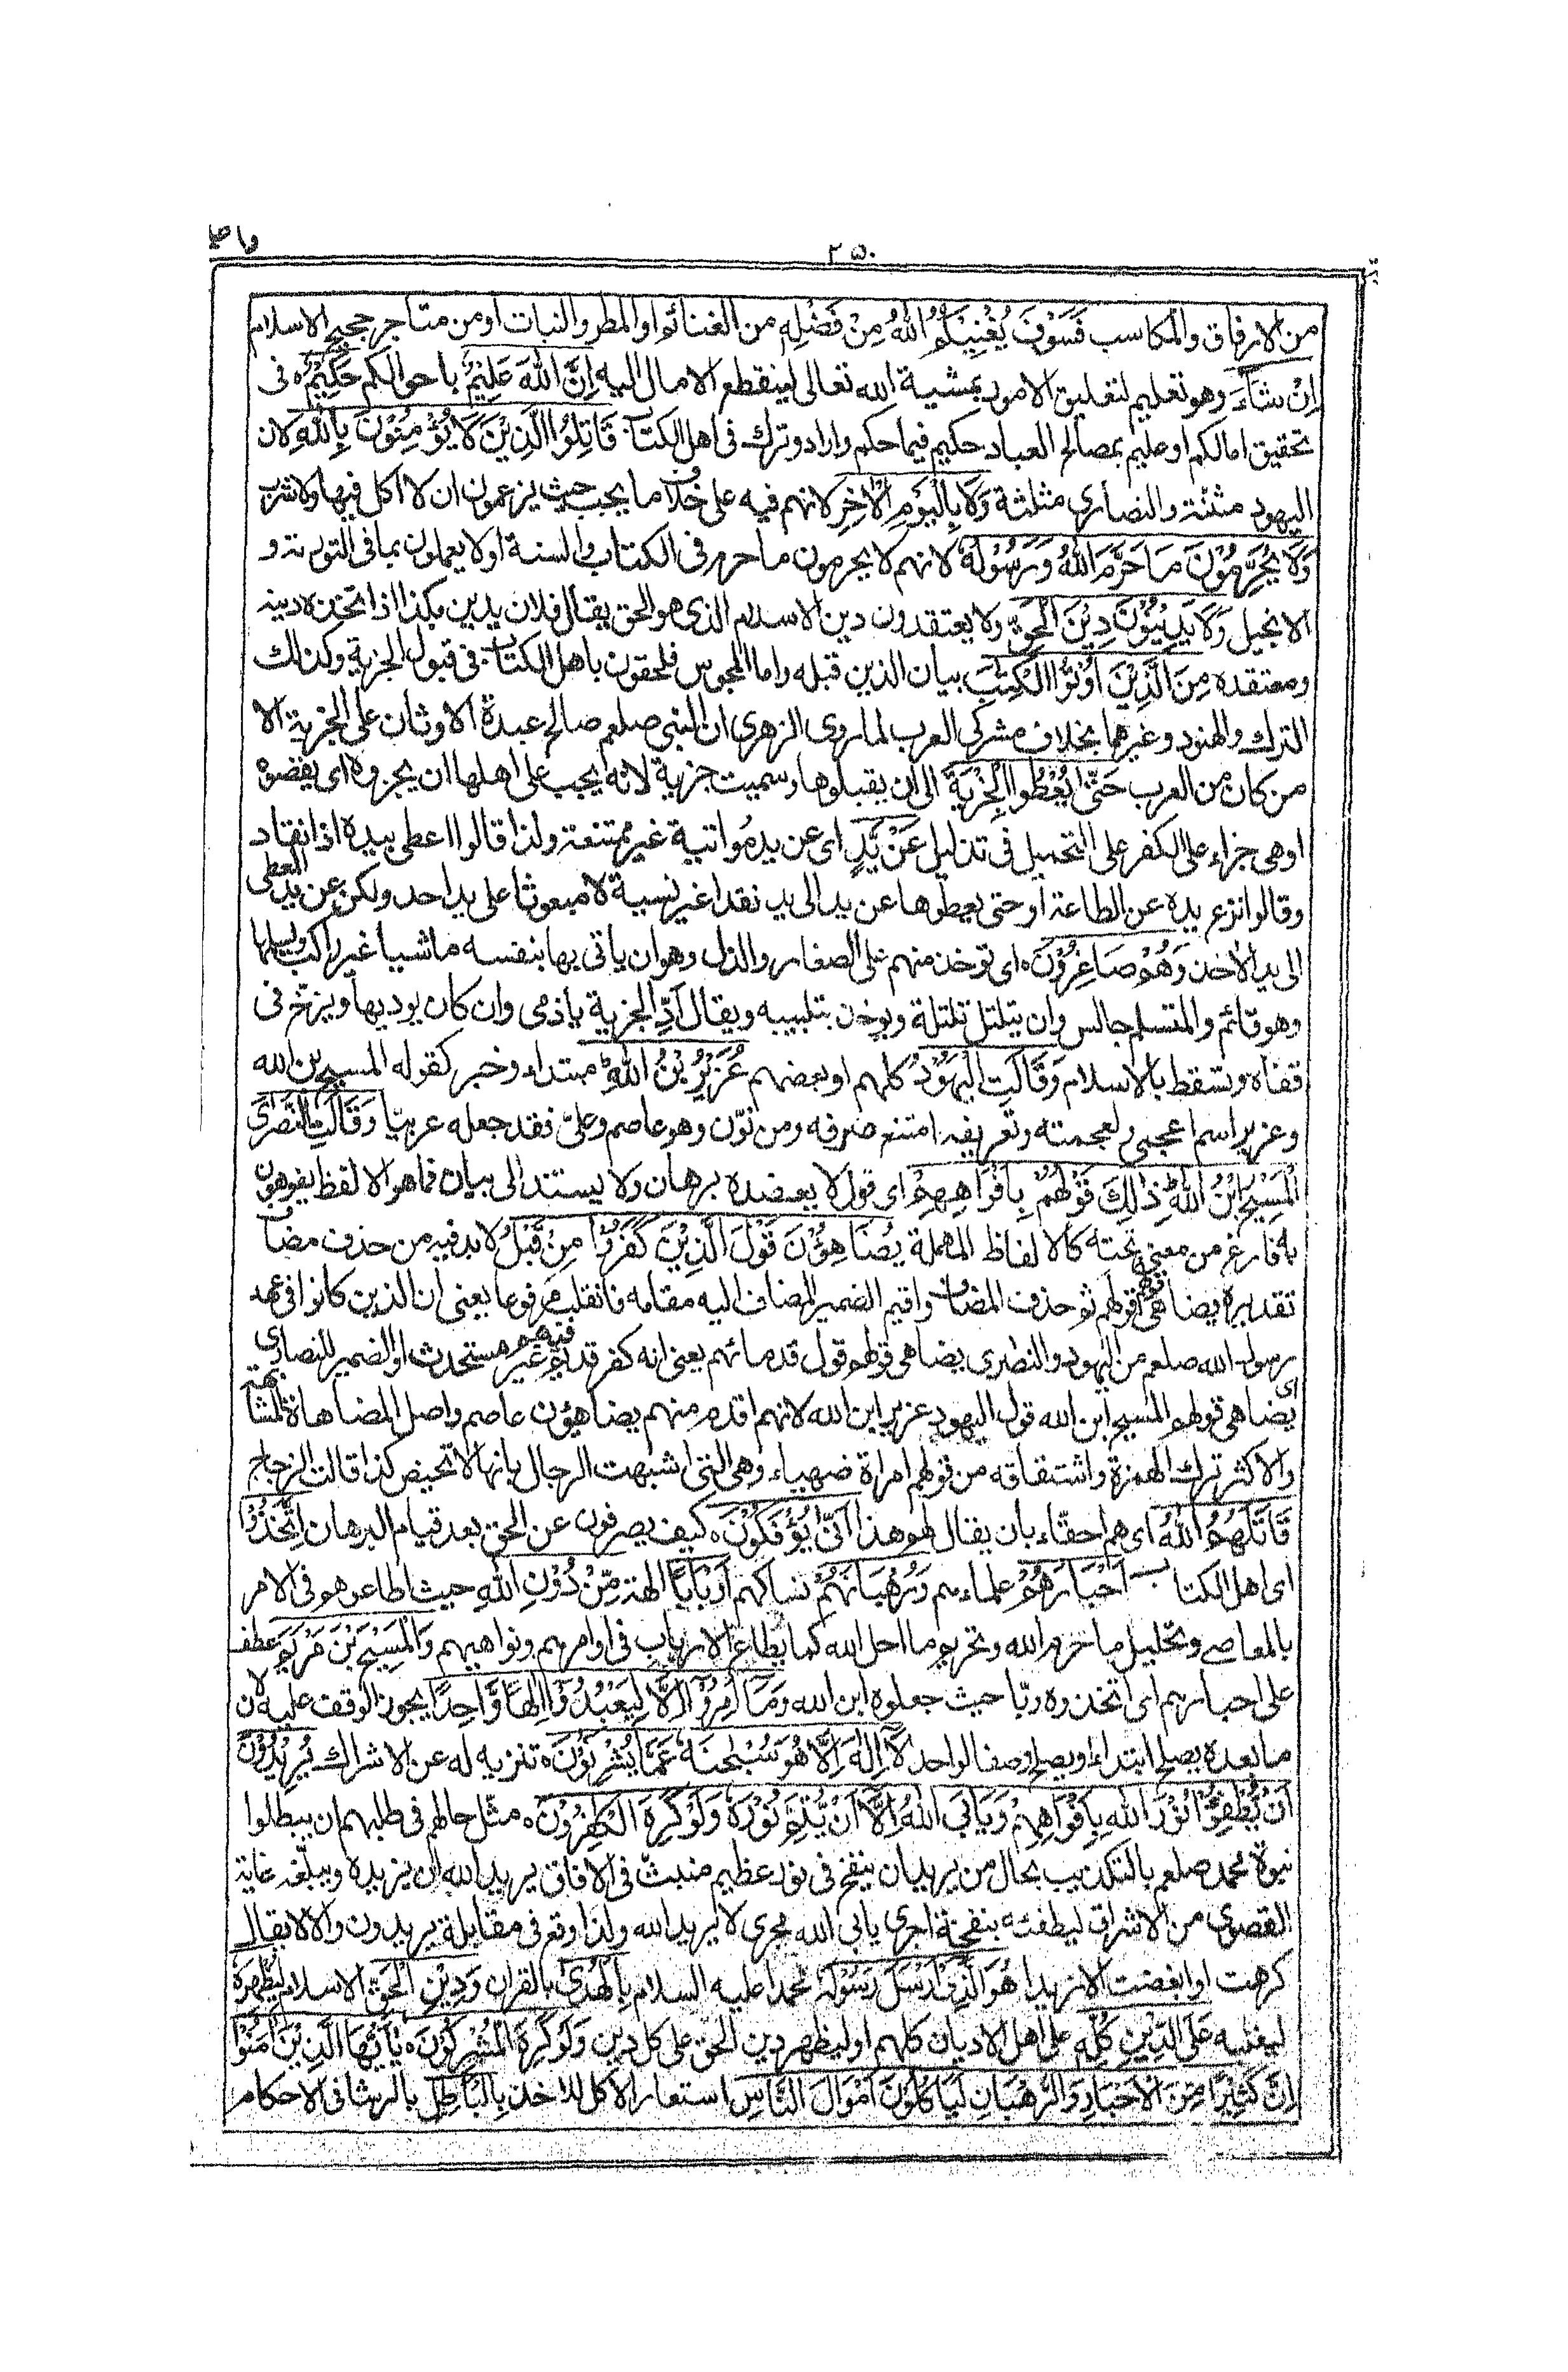 ٢٥٠
واعلموا
من الارفاق والمكاسب فَسَوْفَ يُغْنِيْكُمُ اللّٰهُ مِنْ فَضْلِهٖ من الغنائم او المطر والنبات او من متاجر حجيج الاسلام
اِنْ شَآءَ وهو تعليم لتعليق الامور بمشية الله تعالى لينقطع الامال اليه اِنَّ اللّٰهَ عَلِيْمٌ باحوالكم حَكِيْمٌ ه فى
تحقيق امالكم او عليم بمصالح العباد حكيم فيما حكم واراد ونزل فى اهل الكتاب قَاتِلُوا الَّذِيْنَ لَا يُؤْمِنُوْنَ بِاللّٰهِ لان
اليهود مثنّتة والنصارى مثلثة وَلَا بِالْيَوْمِ الْاٰخِرِ لانهم فيه على خلاف ما يجب حيث يزعمون ان لا اكل فيها ولا شرب
وَلَا يُحَرِّمُوْنَ مَا حَرَّمَ اللّٰهُ وَرَسُوْلُهٗ لانهم لا يحرمون ما حرم فى الكتاب والسنة او لا يعملون بما فى التورٰىة و
الانجيل وَلَا يَدِيْنُوْنَ دِيْنَ الْحَقِّ ولا يعتقدون دين الاسلام الذى هو الحق يقال فلان يدين بكذا اذا اتخذه دينه
ومعتقده مِنَ الَّذِيْنَ اُوْتُوا الْكِتٰبَ بيان الذين قبله واما المجوس فلحقون باهل الكتاب فى قبول الجزية وكذلك
الترك والهنود وغيرهما بخلاف مشركى العرب لما روى الزهرى ان النبى صلعم صالح عبدة الاوثان على الجزية الا
من كان من العرب حَتّٰى يُعْطُوا الْجِزْيَةَ الى ان يقبلوها وسميت جزية لانه يجب على اهلها ان يجزوه اى يقضوه
او هى جزاء على الكفر على التحميل فى تذليل عَنْ يَّدٍ اى عن يد مُواتية غير ممتنعة ولذا قالوا اعطى بيده اذا انقاد
وقالوا نزع يده عن الطاعة او حتى يعطوها عن يد الى يد نقدا غير نسيئة لا مبعوثا على يد احد ولكن عن يد المعطى
الى يد الاخذ وَهُمْ صَاغِرُوْنَ ه اى توخذ منهم على الصغار والذل وهو ان ياتى بها بنفسه ماشيا غير راكب ويسلمها
وهو قائم والمتسلم جالس وان يتلتل تلتلة ويوخذ بتلبيبه ويقال اَدِّ الجزية ياذمى وان كان يوديها ويزخّ فى
قفاه وتسقط بالاسلام وَقَالَتِ الْيَهُوْدُ كلهم او بعضهم عُزَيْرُ بْنُ اللّٰهِ مبتداء وخبر كقوله المسيح بن الله
وعزير اسم اعجمى ولعجمته وتعريفه امتنع صرفه ومن نوّن وهو عاصم وعلىّ فقد جعله عربيّا وَقَالَتِ النَّصٰرَى
الْمَسِيْحُ ابْنُ اللّٰهِ ذٰلِكَ قَوْلُهُمْ بِاَفْوَاهِهِمْ اى قول لا يعضده برهان ولا يستند الى بيان فما هو الا لفظ يفوهون
به فارغ من معنى تحته كالالفاظ المهملة يُضَاهِؤُنَ قَوْلَ الَّذِيْنَ كَفَرُوْا مِنْ قَبْلُ لا بد فيه من حذف مضاف
تقديره يضاهى قولهم قولهم ثم حذف المضاف واقيم الضمير المضاف اليه مقامه فانقلب مرفوعا يعنى ان الذين كانوا فى عهد
رسول الله صلعم من اليهود والنصٰرى يضاهى قولهم قول قدمائهم يعنى انه كفر قديم فيهم غير مستحدث او الضمير للنصارى
اى يضاهى قولهم المسيح ابن الله قول اليهود عزير ابن الله لانهم اقدم منهم يضاهؤن عاصم واصل المضاهاة المشابهة
والاكثر ترك الهمزة واشتقاقه من قولهم امراة ضهياء وهى التى اشبهت الرجال بانها لا تحيض كذا قالت الزجاج
قَاتَلَهُمُ اللّٰهُ اى هم احقّاء بان يقال لهم هذا اَنّٰى يُؤْفَكُوْنَ ه كيف يصرفون عن الحق بعد قيام البرهان اِتَّخَذُوْا
اى اهل الكتاب اَحْبَارَهُمْ علماءهم وَرُهْبَانَهُمْ نساكهم اَرْبَابًا الهة مِّنْ دُوْنِ اللّٰهِ حيث اطاعوهم فى الامر
بالمعاصى وتحليل ما حرم الله وتحريم ما احل الله كما يطاع الارباب فى اوامرهم ونواهيهم وَالْمَسِيْحَ بْنَ مَرْيَمَ عطف
على احبارهم اى اتخذوه ربّا حيث جعلوه ابن الله وَمَا اُمِرُوْا اِلَّا لِيَعْبُدُوْا اِلٰهًا وَّاحِدًا يجوز الوقف عليه لان
ما بعده يصلح ابتداء ويصلح وصفا لواحد لَا اِلٰهَ اِلَّا هُوَ سُبْحٰنَهٗ عَمَّا يُشْرِكُوْنَ ه تنزيه له عن الاشراك يُرِيْدُوْنَ
اَنْ يُّطْفِؤُا نُوْرَ اللّٰهِ بِاَفْوَاهِهِمْ وَيَاْبَى اللّٰهُ اِلَّا اَنْ يُّتِمَّ نُوْرَهٗ وَلَوْ كَرِهَ الْكٰفِرُوْنَ ه مثّل حالهم فى طلبهم ان يبطلوا
نبوة محمد صلعم بالتكذيب بحال من يريد ان ينفخ فى نور عظيم منبثّ فى الافاق يريد الله ان يزيده ويبلّغه غاية
القصوى من الاشراق ليطفئه بنفخة اجرى يابى الله مجرى لا يريد الله ولذا وقع فى مقابلة يريدون والا لا يقال
كرهت او ابغضت الا زيدا هُوَ الَّذِىْ اَرْسَلَ رَسُوْلَهٗ محمدا عليه السلام بِالْهُدٰى بالقران وَدِيْنِ الْحَقِّ الاسلام لِيُظْهِرَهٗ
ليغلبه عَلَى الدِّيْنِ كُلِّهٖ على اهل الاديان كلهم او ليظهر دين الحق على كل دين وَلَوْ كَرِهَ الْمُشْرِكُوْنَ ه يٰاَيُّهَا الَّذِيْنَ اٰمَنُوْا
اِنَّ كَثِيْرًا مِّنَ الْاَحْبَارِ وَالرُّهْبَانِ لَيَاْكُلُوْنَ اَمْوَالَ النَّاسِ استعار الاكل للاخذ بِالْبَاطِلِ بالرشا فى الاحكام